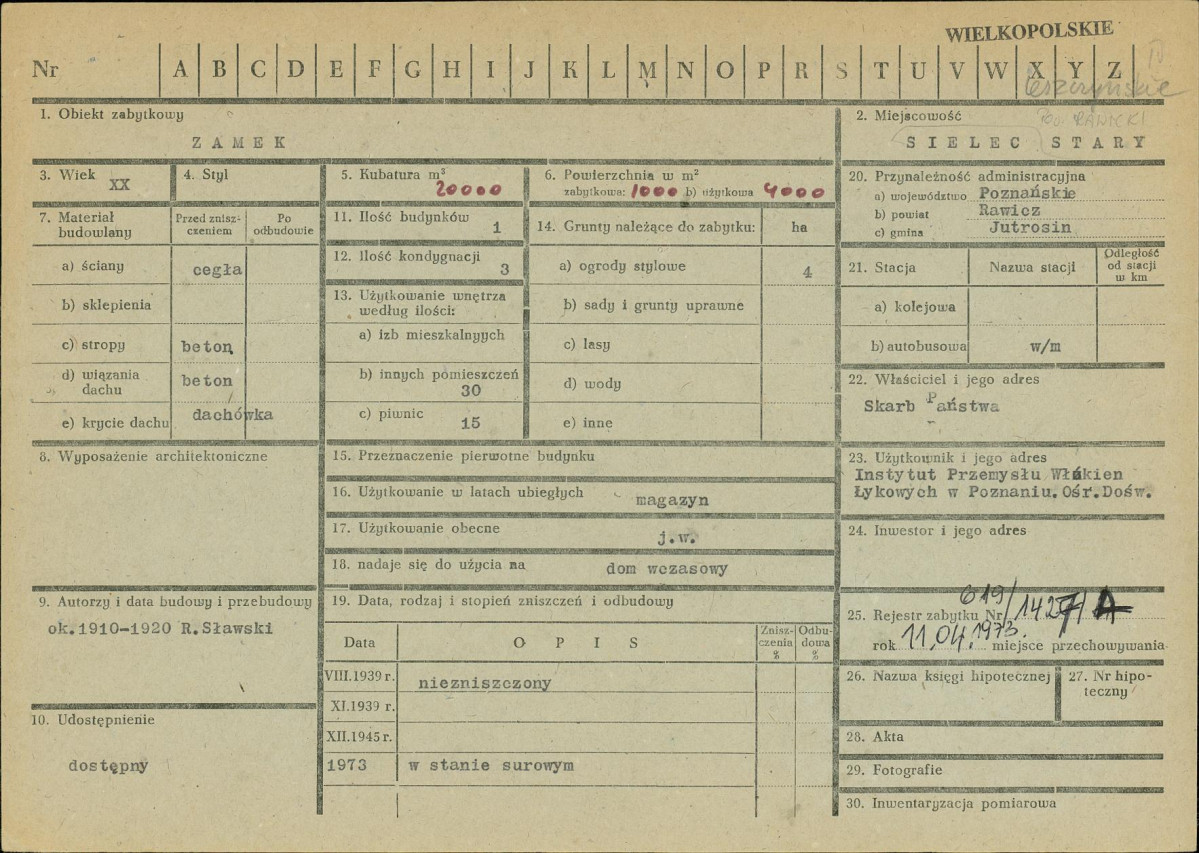 WIELKOPOLSKIE
Nr A B C D E F G H I J K L M N O P R S T U V W X Y Z
IV
leszczyńskie
1. Obiekt zabytkowy
ZAMEK
2. Miejscowość
pow. RAWICKI
SIELEC STARY
3. Wiek
XX
4. Styl
5. Kubatura m³
20000
6. Powierzchnia w m²
zabytkowa: 1000 b) użytkowa 4000
20. Przynależność administracyjna
a) województwo Poznańskie
b) powiat Rawicz
c) gmina Jutrosin
7. Materiał budowlany
Przed zniszczeniem
Po odbudowie
a) ściany cegła
b) sklepienia
c) stropy beton
d) wiązania dachu beton
e) krycie dachu dachówka
11. Ilość budynków
1
12. Ilość kondygnacji
3
13. Użytkowanie wnętrza
według ilości:
a) izb mieszkalnyych
b) innych pomieszczeń
30
c) piwnic
15
14. Grunty należące do zabytku: ha
a) ogrody stylowe 4
b) sady i grunty uprawne
c) lasy
d) wody
e) inne
21. Stacja Nazwa stacji Odległość od stacji w km
a) kolejowa
b) autobusowa w/m
22. Właściciel i jego adres
Skarb Państwa
8. Wyposażenie architektoniczne
15. Przeznaczenie pierwotne budynku
16. Użytkowanie w latach ubiegłych
magazyn
17. Użytkowanie obecne
j.w.
18. nadaje się do użycia na dom wczasowy
23. Użytkownik i jego adres
Instytut Przemysłu Włókien
Łykowych w Poznaniu.Ośr.Dośw.
24. Inwestor i jego adres
9. Autorzy i data budowy i przebudowy
ok.1910-1920 R.Sławski
10. Udostępnienie
dostępny
19. Data, rodzaj i stopień zniszczeń i odbudowy
Data OPIS Zniszczenia % Odbudowa %
VIII.1939 r. niezniszczony
XI.1939 r.
XII.1945 r.
1973 w stanie surowym
25. Rejestr zabytku Nr 619/1427/A
rok 11.04.1973. miejsce przechowywania
26. Nazwa księgi hipotecznej
27. Nr hipoteczny
28. Akta
29. Fotografie
30. Inwentaryzacja pomiarowa